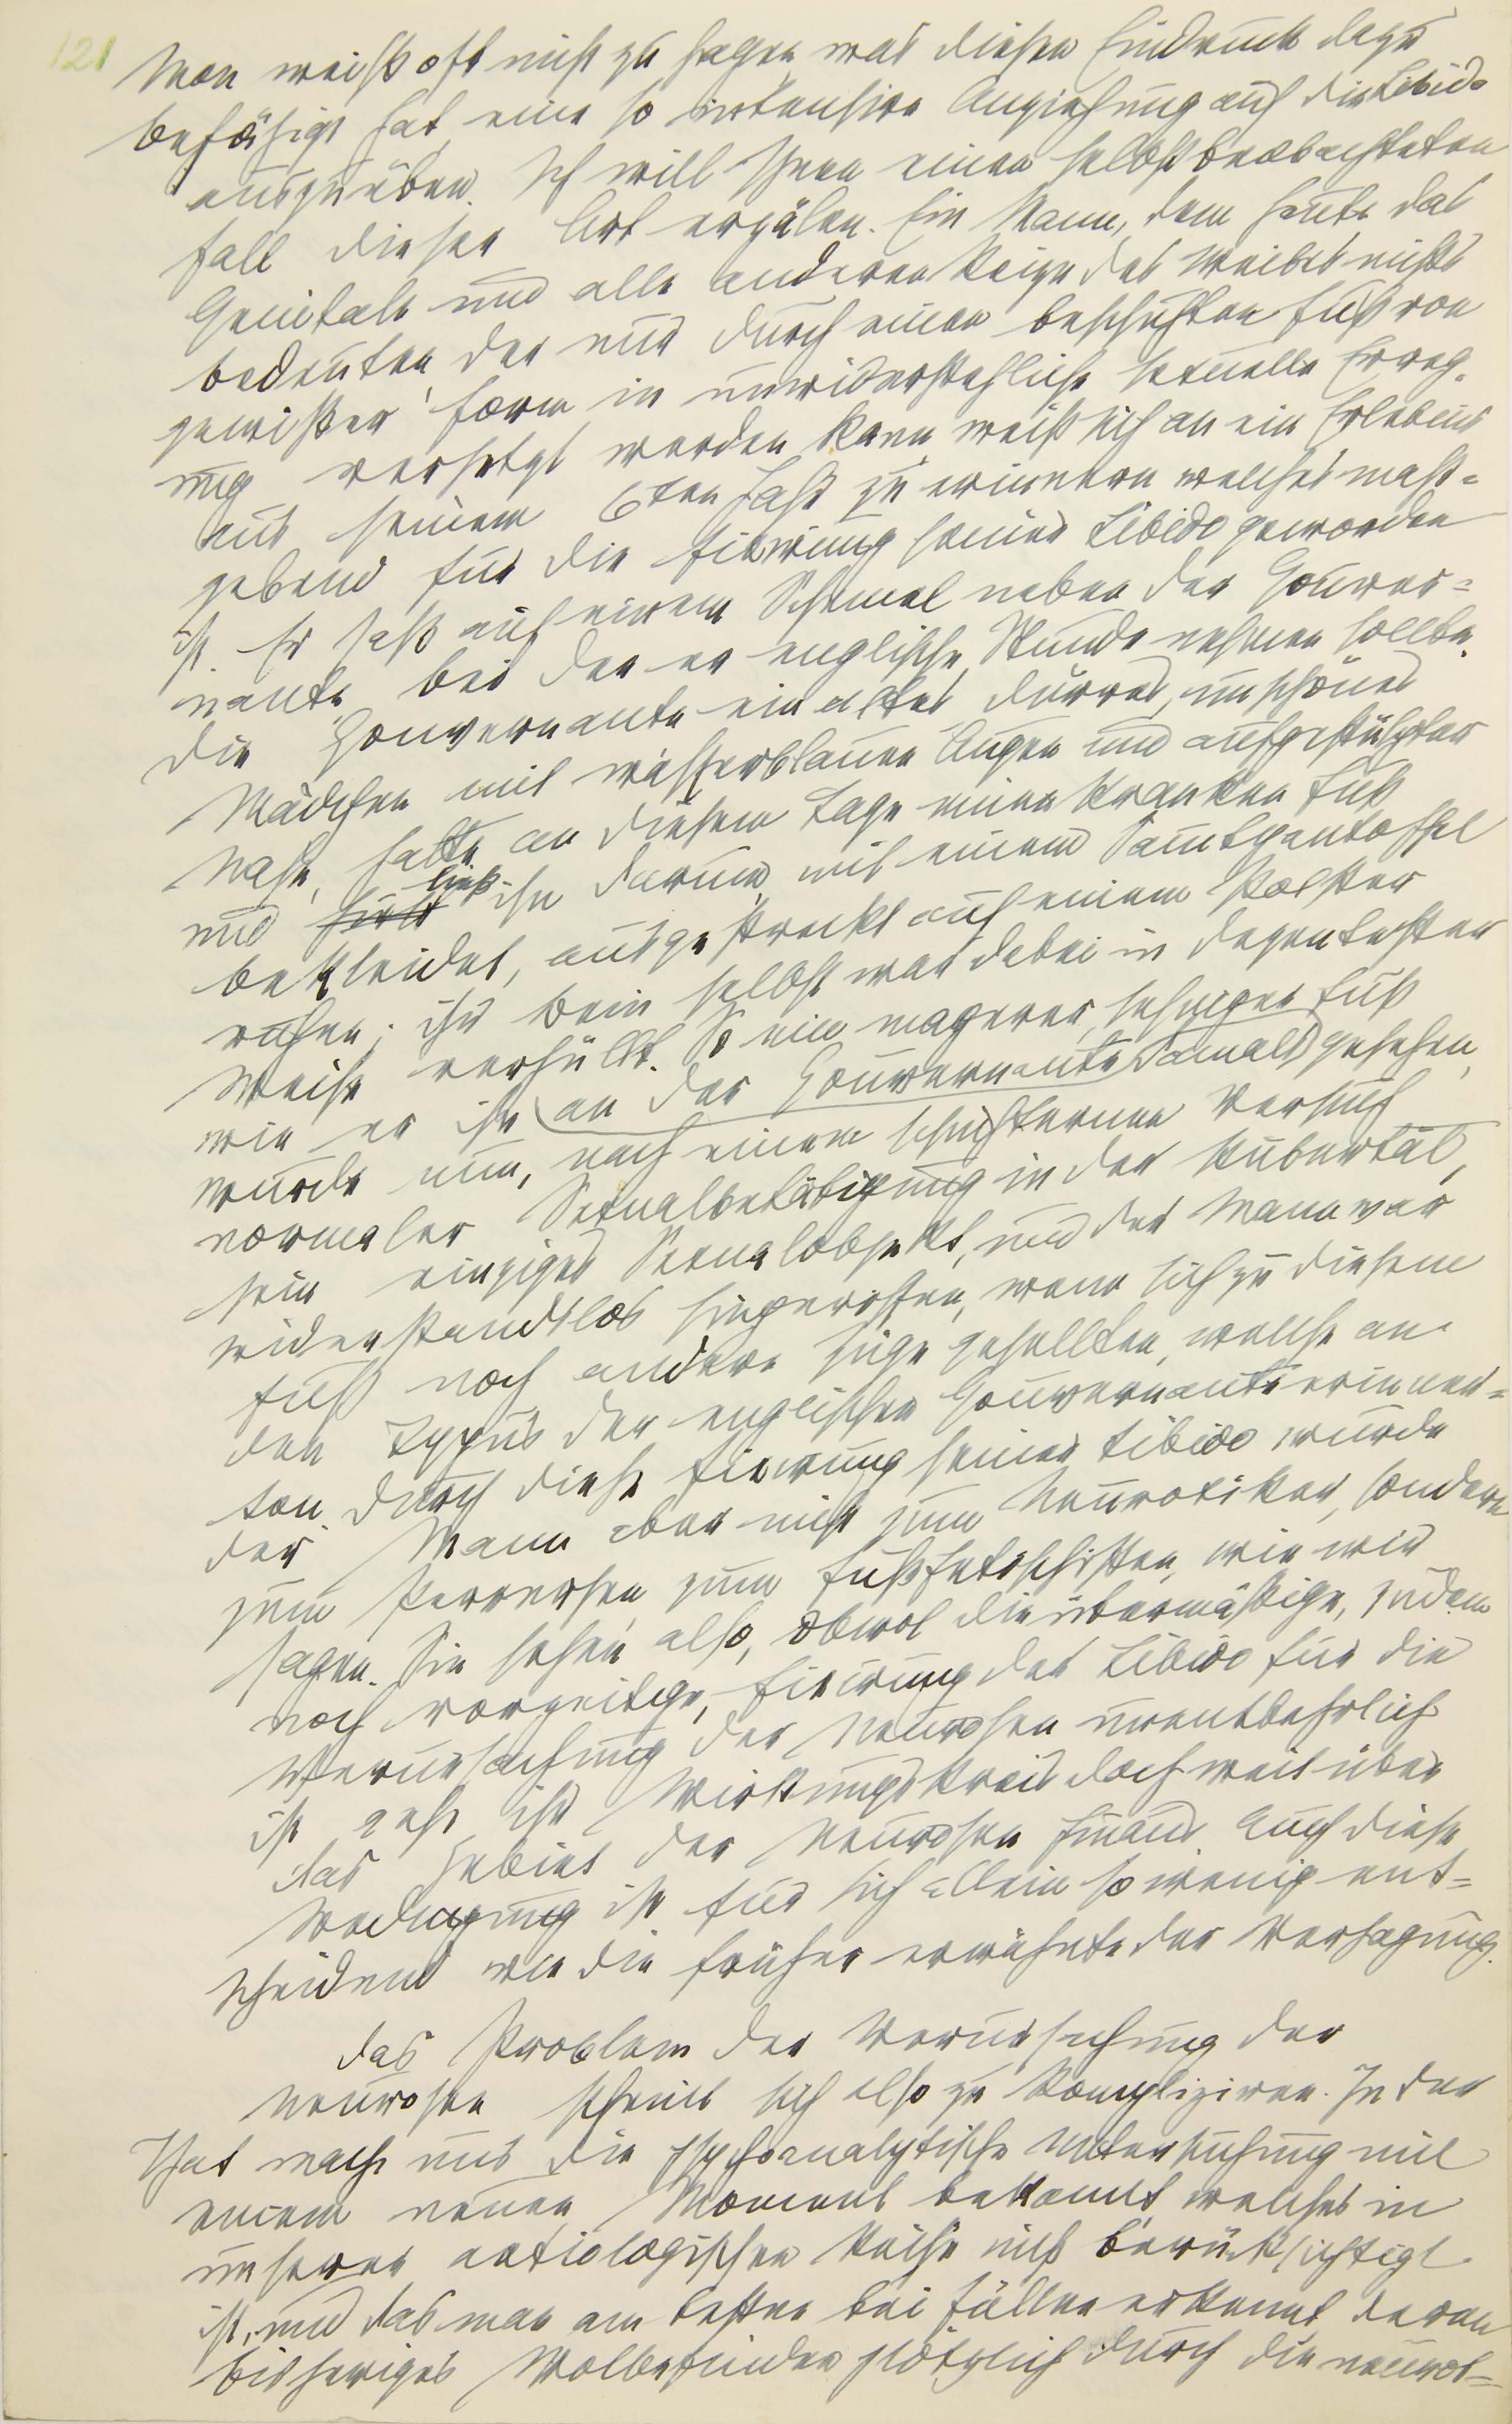 121
Man weiß oft nicht zu sagen, was diesen Eindruck dazu
befähigt hat, eine so intensive Anziehung auf die Libido
auszuüben. Ich will Ihnen einen selbst beobachteten
Fall dieser Art erzälen. Ein Mann, dem heute das
Genitale und alle anderen Reize des Weibes nichts
bedeuten, der nur durch einen beschuhten Fuß von
gewisser Form in unwiderstehliche sexuelle Erreg-
ung versetzt werden kann, weiß sich an ein Erlebnis
aus seinem 6ten Jahr zu erinnern, welches maß=
gebend für die Fixirung seiner Libido geworden
ist. Er saß auf einem Schemel neben der Gouver=
nante, bei der er englische Stunde nehmen sollte.
Die Gouvernante, ein altes, dürres, unschönes
Mädchen mit wasserblauen Augen und aufgestülpter
Nase, hatte an diesem Tage einen kranken Fuß
und hielt ließ ihn darum, mit einem Samtpantoffel
bekleidet, ausgestreckt auf einem Polster
ruhen; ihr Bein selbst war dabei in dezentester
Weise verhüllt. So ein magerer, sehniger Fuß,
wie er ihn (an der Gouvernante damals) gesehen,
wurde nun, nach einem schüchternen Versuch
normaler Sexualbetätigung in der Pubertät,
sein einziges Sexualobjekt, und der Mann war
widerstandslos hingerissen, wenn sich zu diesem
Fuß noch andere Züge gesellten, welche an
den Typus der englischen Gouvernante erinner=
ten. Durch diese Fixirung seiner Libido wurde
der Mann aber nicht zum Neurotiker, sondern
zum Perversen, zum Fußfetischisten, wie wir
sagen. Sie sehen also, obwol die übermäßige, zudem
noch vorzeitige, Fixirung der Libido für die
Verursachung der Neurosen unentbehrlich
ist, geht ihr Wirkungskreis doch weit über
das Gebiet der Neurosen hinaus. Auch diese
Bedingung ist für sich allein so wenig ent=
scheidend wie die früher erwähnte der Versagung.
Das Problem der Verursachung der
Neurosen scheint sich also zu kompliziren. In der
That macht uns die psychoanalytische Untersuchung mit
einem neuen Moment bekannt, welches in
unserer aetiologischen Reihe nicht berücksichtigt
ist, und das man am besten bei Fällen erkennt, deren
bisheriges Wolbefinden plötzlich durch die neurot=